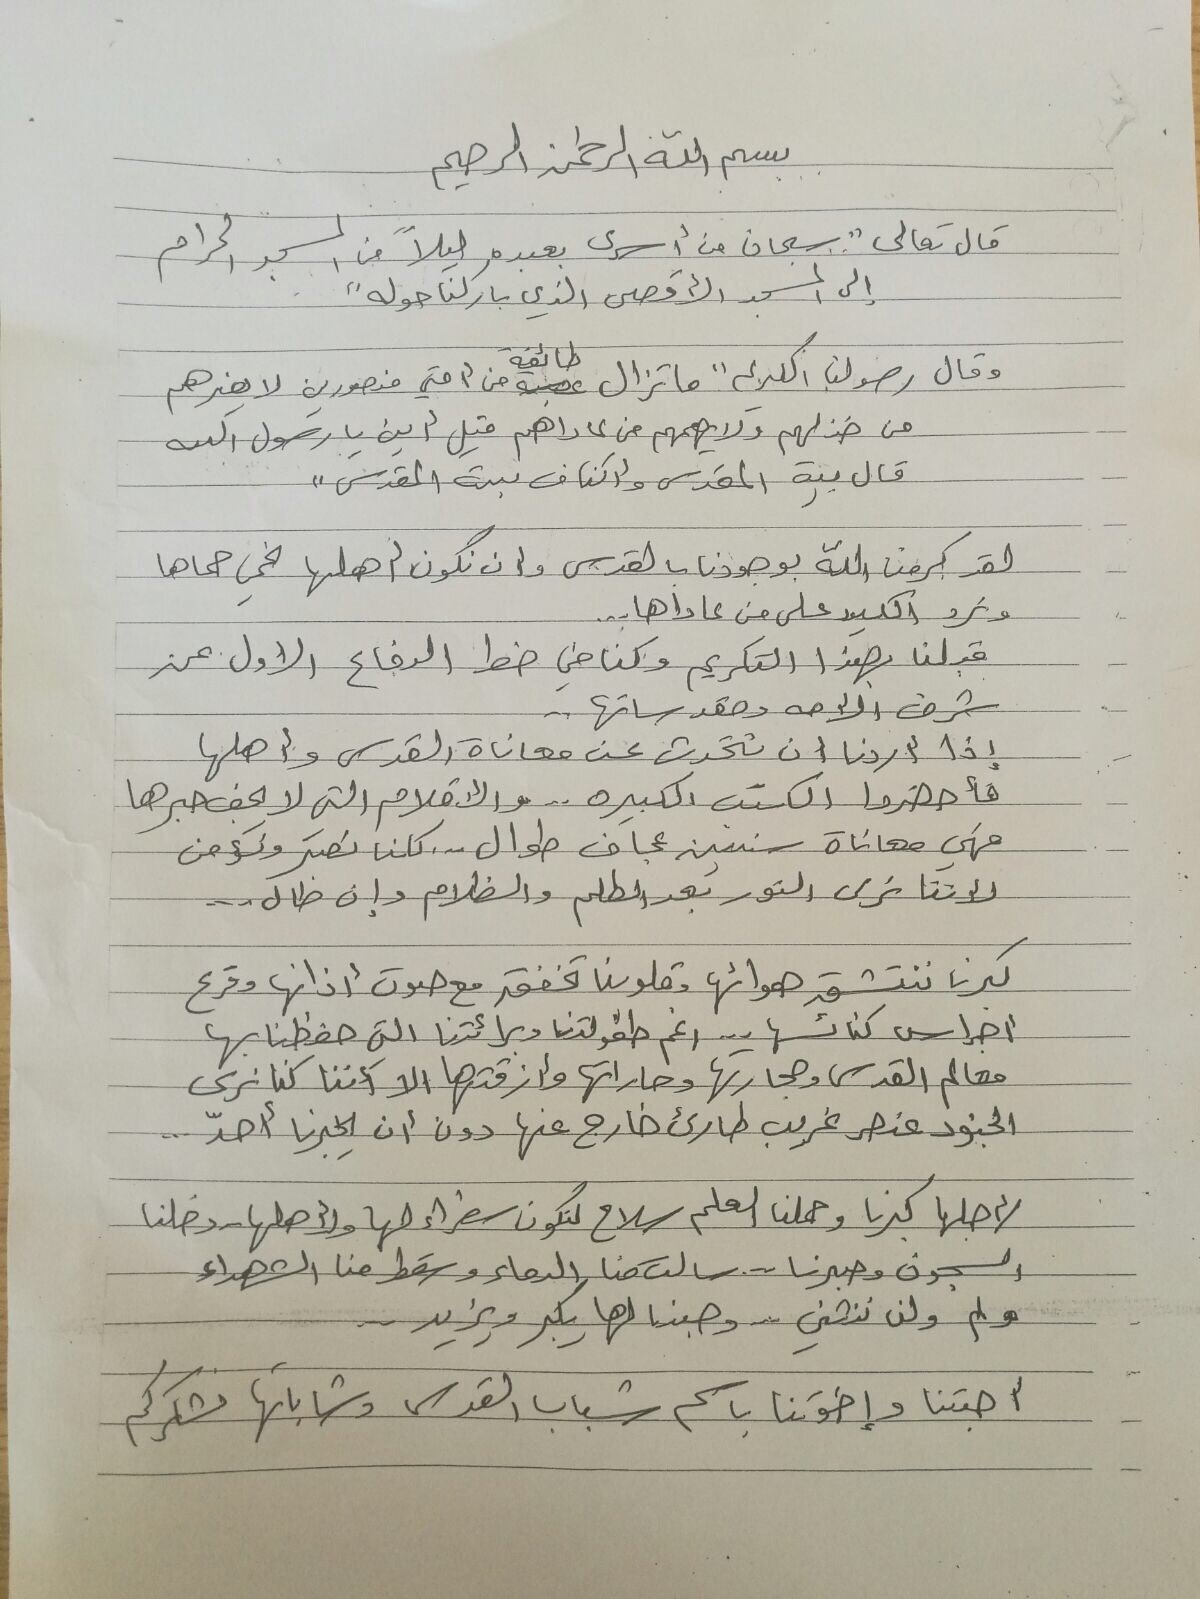 بسم الله الرحمن الرحيم
قال تعالى " سبحان من أسرى بعبده ليلاً من المسجد الحرام
إلى المسجد الأقصى الذي باركنا حوله "
وقال رسولنا الكريم " ما تزال طائفة من أمتي منصورين لا يضرهم
من خذلهم ولا يهمهم من عاداهم قيل أين يا رسول الله
قال بيت المقدس وأكناف بيت المقدس "
لقد كرمنا الله بوجودنا بالقدس وان نكون أهلها نحمي حماها
ونرد الكيد على من عاداها ...
قبلنا بهذا التكريم وكنا في خط الدفاع الاول عن
شرف الأمه ومقدساتها ..
إذا أردنا ان نتحدث عن معاناة القدس وأهلها
فأحضروا الكتب الكبيره .. والأقلام التي لا يجف حبرها
فهي معاناة سنين عجاف طوال .. كلنا نصبر ونؤمن
لأننا نرى النور بعد الظلم والظلام وإن طال ...
كبرنا نتنشق هوائها وقلوبنا تخفق مع صوت أذانها وقرع
أجراس كنائسها .. رغم طفولتنا وبرائتنا التي حفظنا بها
معالم القدس وحجارتها وحاراتها وأزقتها الا أننا كنا نرى
الجنود عنصر غريب طارئ خارج عنها دون أن يخبرنا أحدّ ...
لأجلها كبرنا وحملنا العلم سلاح لنكون سفراء لها ولأهلها .. دخلنا
السجون وصبرنا .. سالت منا الدماء وسقط منا الشهداء
ولم ولن ننثني .. وحبنا لها يكبر ويزيد ..
أحبتنا وإخوتنا باسم شباب القدس وشاباتها نشكركم